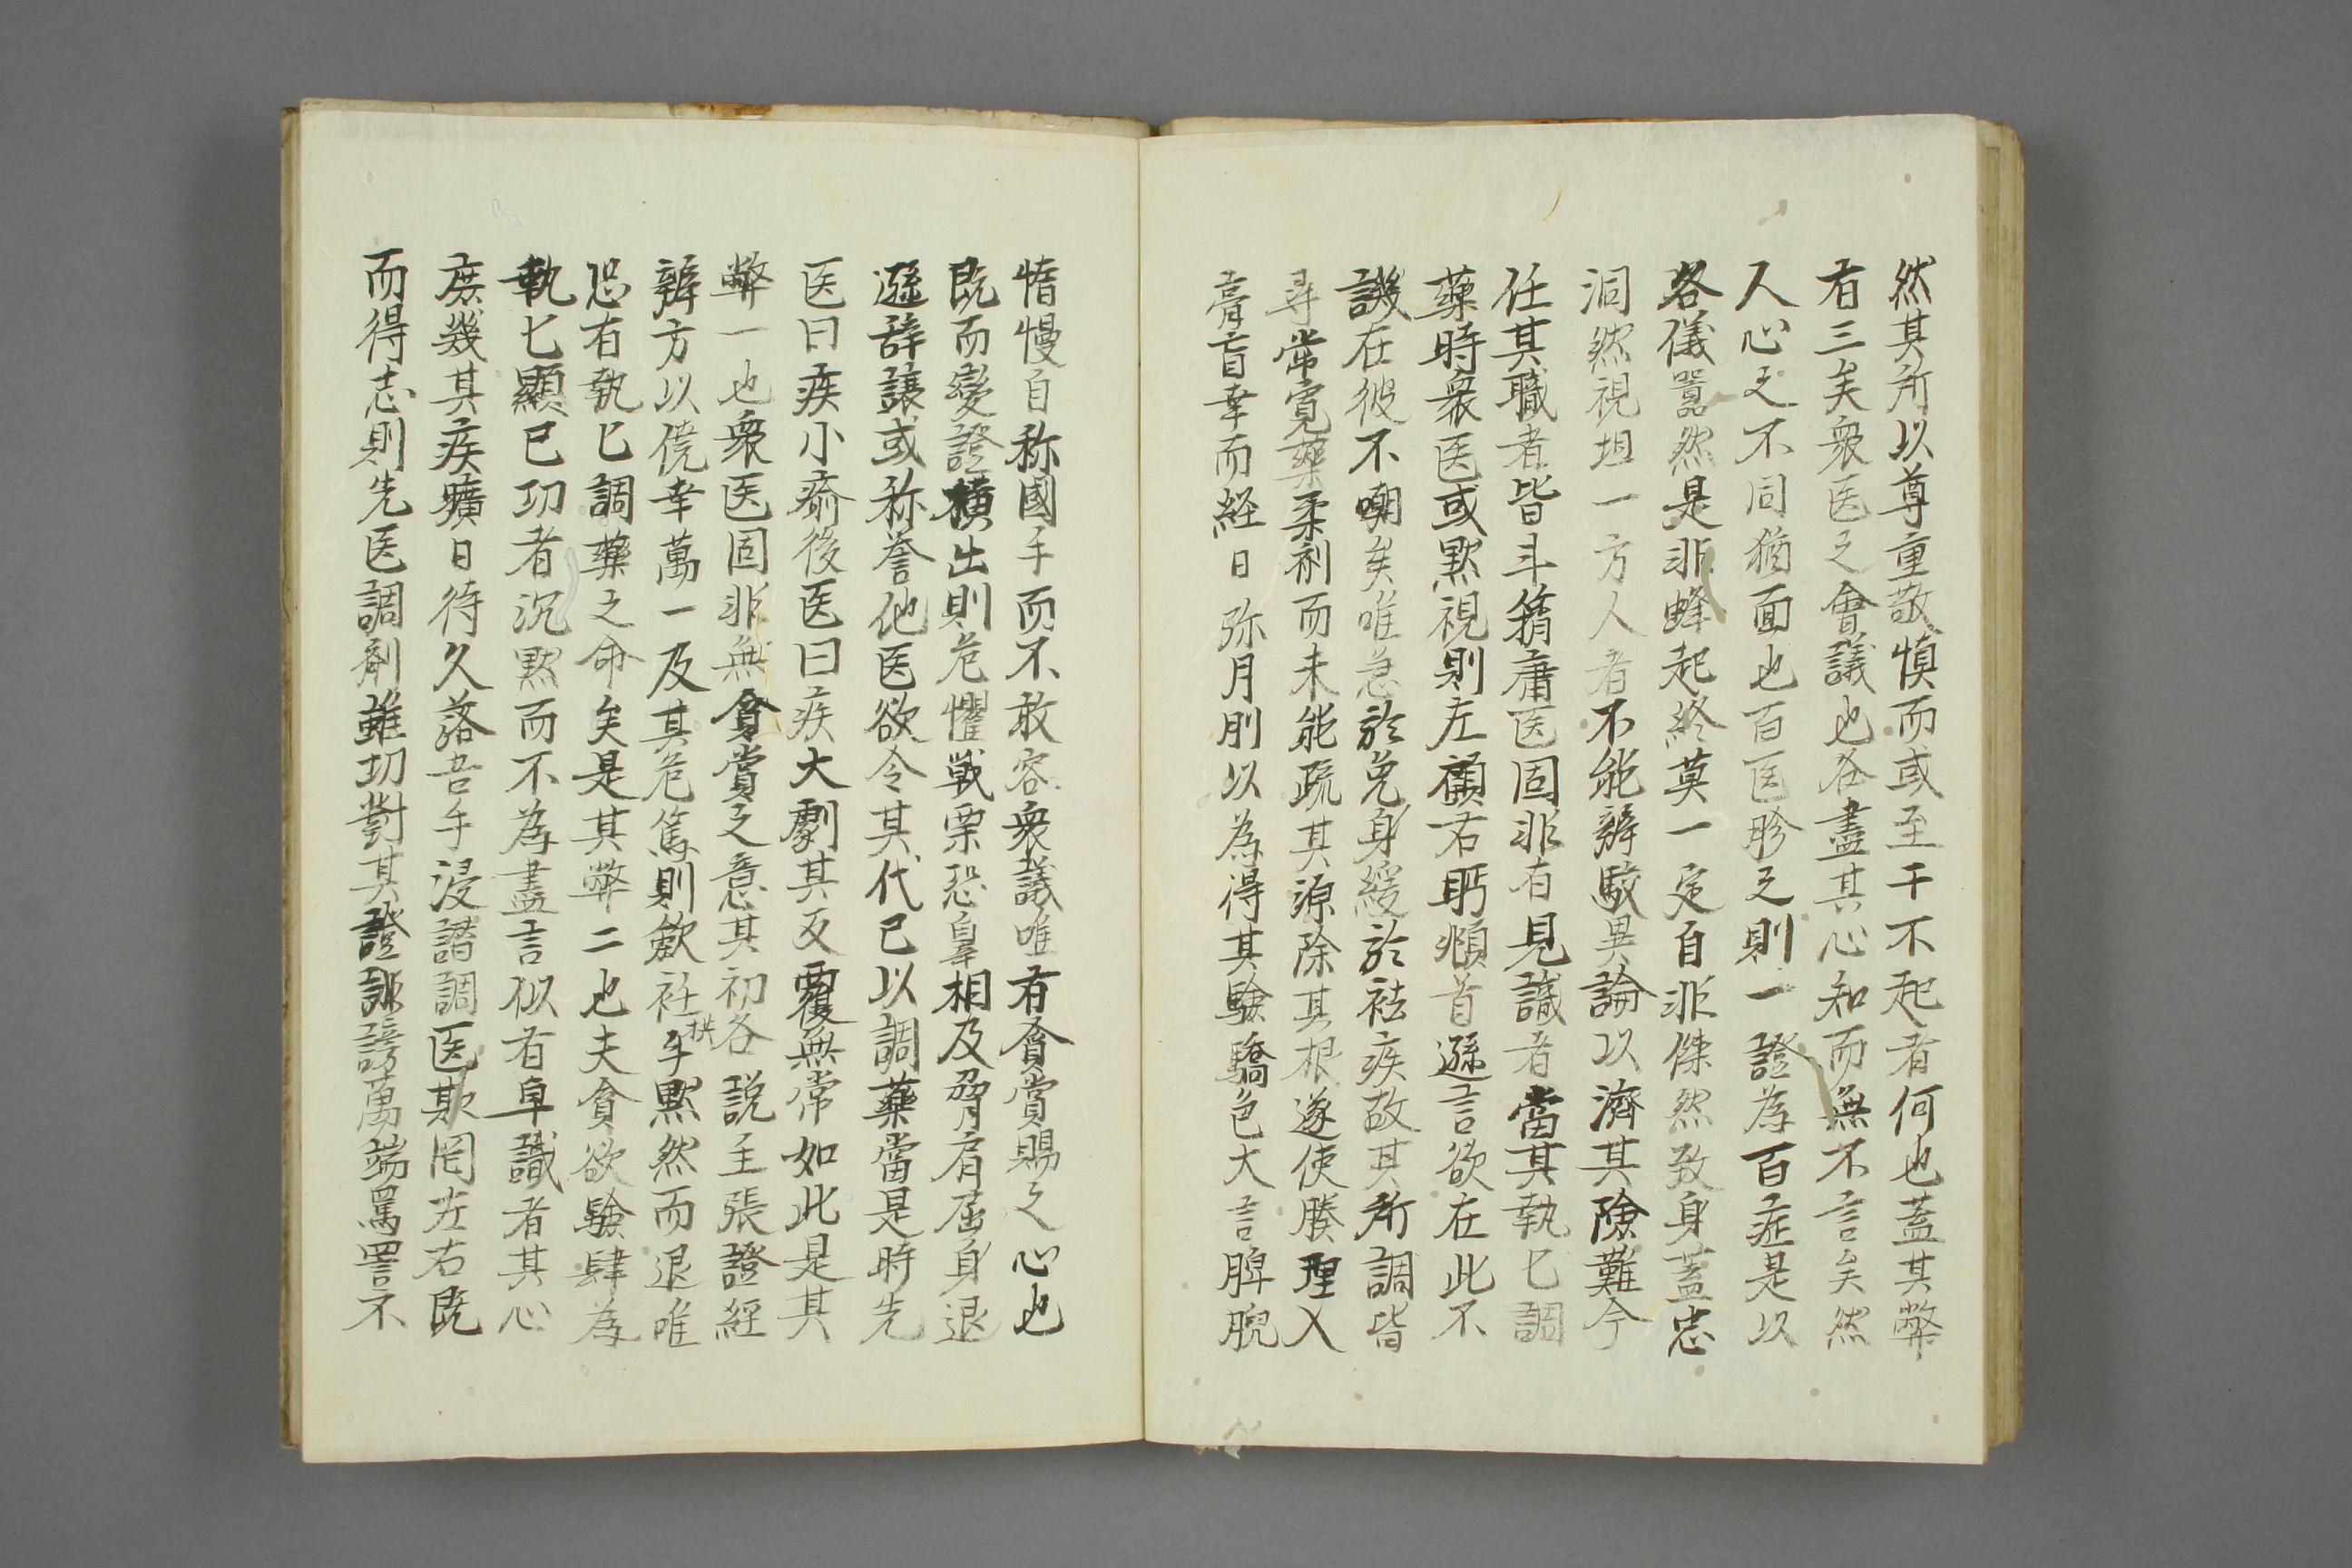 然其所以尊重敬慎而或至于不起者何也蓋其弊
有三矣衆医之會議也各盡其心知而無不言矣然
人心之不同猶面也百医胗之則一證為百症是以
各儀囂然是非蜂起終莫一定自非傑然致身蓋忠
洞然視垣一方人者不能辨駁異論以濟其險難今
任其職者皆斗筲庸医固非有見識者當其執匕調
藥時衆医或黙視則左顧右眄頫首遜言欲在此不
譏在彼不嘲矣唯急於免身緩於祛疾故其所調皆
尋常寛藥柔剤而未能疏其源除其根遂使腠理入
膏盲幸而経日弥月則以為得其驗驕色大言脾睨
惰慢自称國手而不敢容衆議唯有貪賞賜之心也
既而變證横出則危懼戦栗恐辠相及脅肩屈身退
遜辞譲或称誉他医欲令其代已以調藥當是時先
医曰疾小瘉後医曰疾大劇其反覆無常如此是其
弊一也衆医固非無貪賞之意其初各説主張證經
辨方以僥幸萬一及其危篤則歛衽拱手黙然而退唯
恐有執匕調藥之命矣是其弊二也夫貪欲驗肆為
執匕顯已功者沉黙而不為盡言似有卓識者其心
庶幾其疾曠日待久落吾手浸譖調医欺罔左右既
而得志則先医調剤雖切對其證誹謗萬端罵詈不